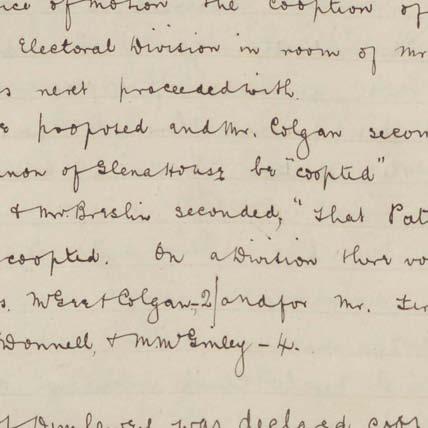 ice of motion the cooption of
Electoral Division in room of Mr
s next proceeded with.
proposed and Mr. Colgan secon
non of Glena House be "coopted"
& Mr. Breslin seconded, "That Pat
coopted. On a Division there vo
s. McGee & Colgan - 2 / and for Mr.
O'Donnell, & M McGinley - 4.
was declared coop